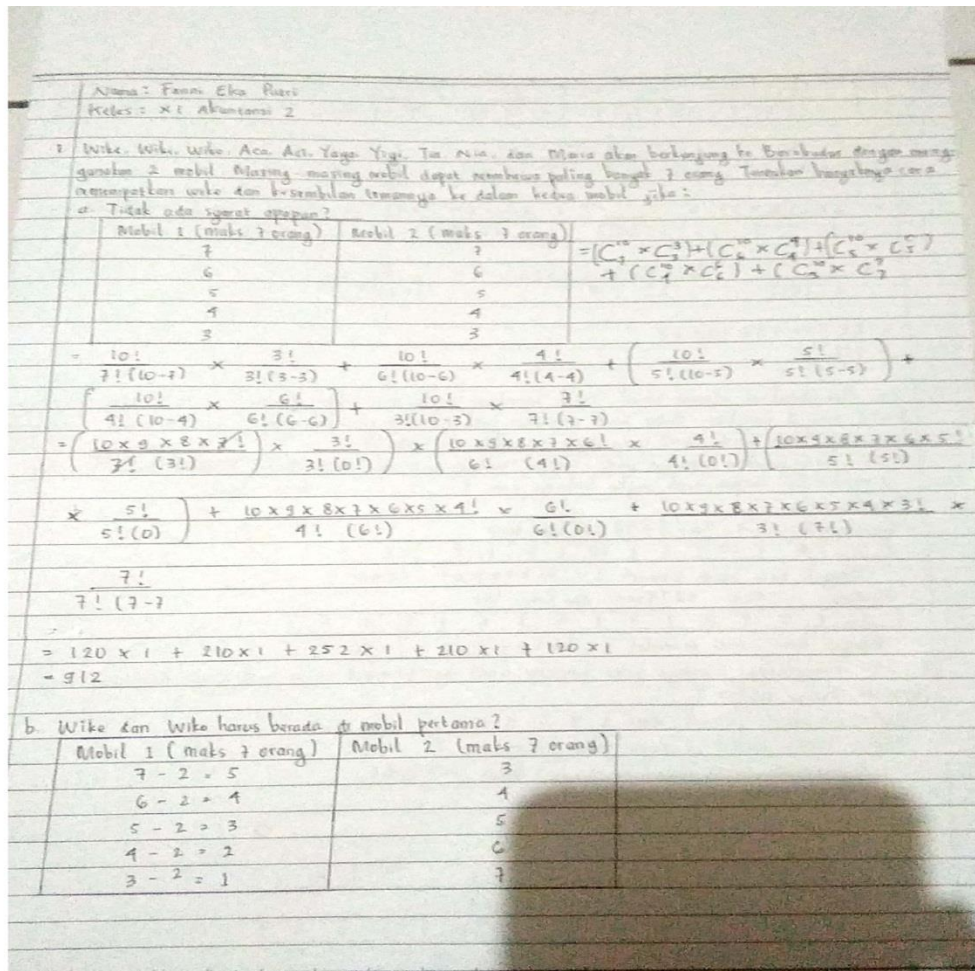 Nama : Fanni Eka Putri
Kelas : XI Akuntansi 2
1 Wike, Wiki, Wiko, Aca, Aci, Yaya, Yiyi, Tia, Nia, dan Maria akan berkunjung ke Borobudur dengan meng
gunakan 2 mobil Masing-masing mobil dapat membawa paling banyak 7 orang Tentukan banyaknya cara
menempatkan wiko dan kesembilan temannya ke dalam kedua mobil jika :
a. Tidak ada syarat apapun?
Mobil 1 (maks 7 orang) Mobil 2 (maks 7 orang)
7 7 = (C₇¹⁰ × C₃³) + (C₆¹⁰ × C₄⁴) + (C₅¹⁰ × C₅⁵)
6 6 + (C₄¹⁰ × C₆⁶) + (C₃¹⁰ × C₇⁷)
5 5
4 4
3 3
= 10!/7!(10-7) × 3!/3!(3-3) + 10!/6!(10-6) × 4!/4!(4-4) + (10!/5!(10-5) × 5!/5!(5-5)) +
(10!/4!(10-4) × 6!/6!(6-6)) + 10!/3!(10-3) × 7!/7!(7-7)
= (10×9×8×7!/7!(3!)) × 3!/3!(0!)) × (10×9×8×7×6!/6!(4!) × 4!/4!(0!)) + (10×9×8×7×6×5!/5!(5!)
× 5!/5!(0)) + 10×9×8×7×6×5×4!/4!(6!) × 6!/6!(0!) + 10×9×8×7×6×5×4×3!/3!(7!) ×
7!/7!(7-7
= 120 × 1 + 210 × 1 + 252 × 1 + 210 × 1 + 120 × 1
= 912
b. Wike dan Wiko harus berada di mobil pertama?
Mobil 1 (maks 7 orang) Mobil 2 (maks 7 orang)
7 - 2 = 5 3
6 - 2 = 4 4
5 - 2 = 3 5
4 - 2 = 2 6
3 - 2 = 1 7